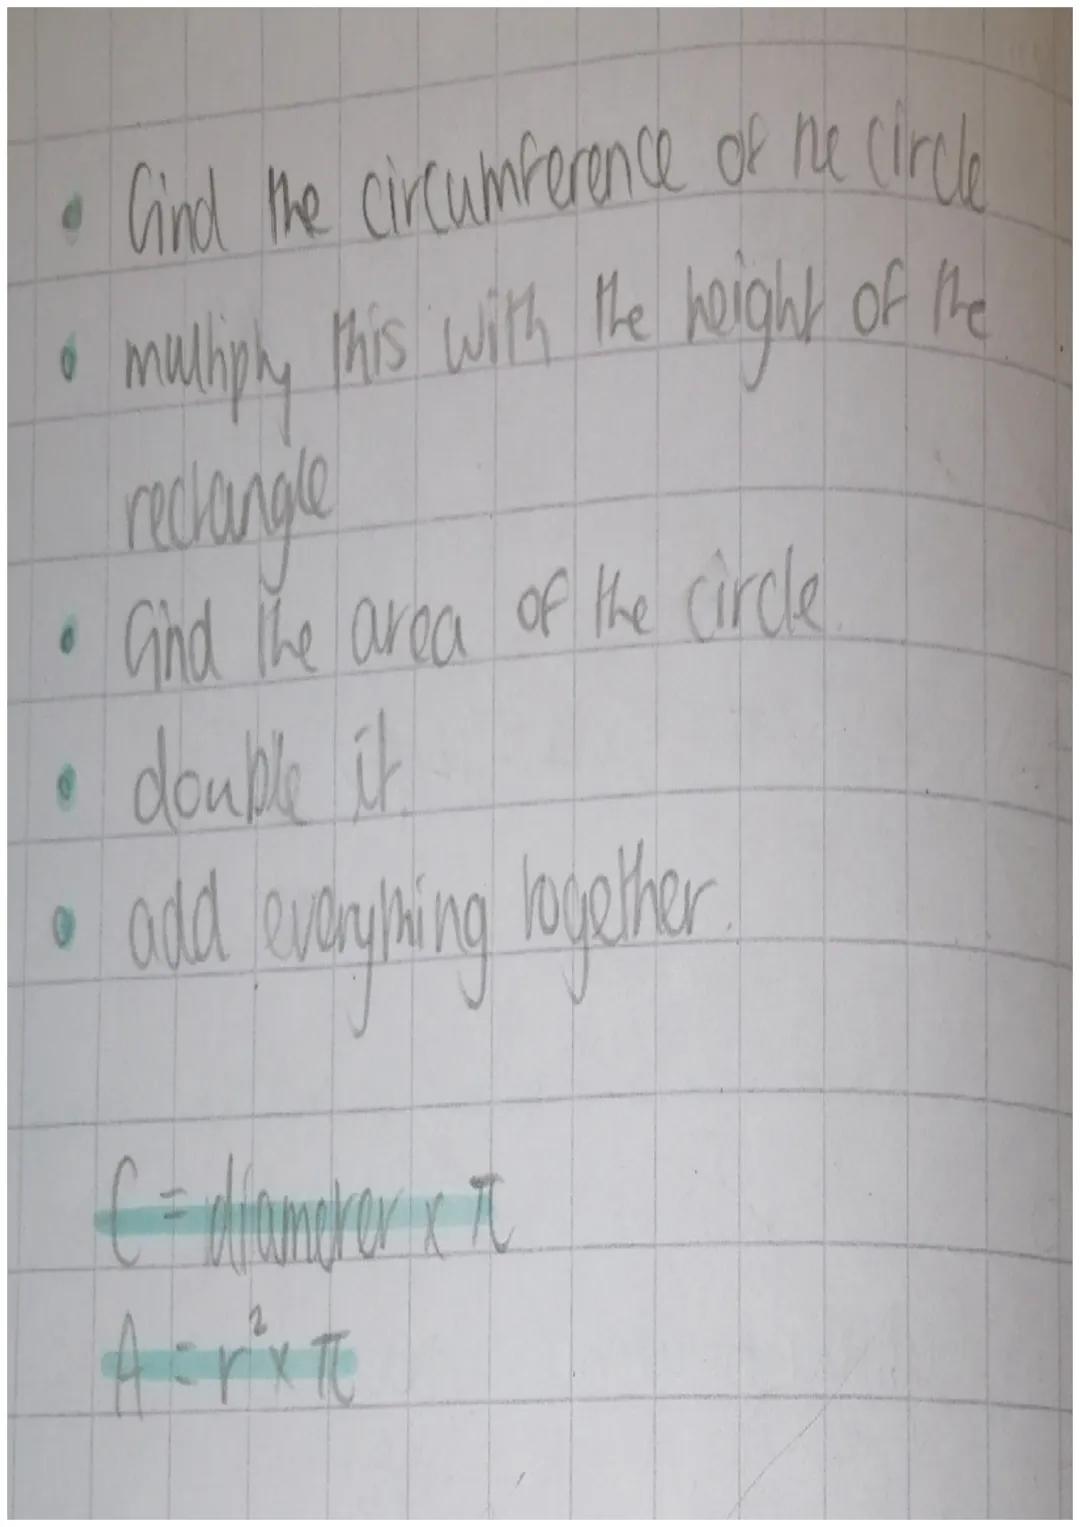 • find the circumference of the circle
• multiply this with the height of the
rectangle
• find the area of the circle.
• double it.
• add everything together.
C = diameter x π
A = r² x π